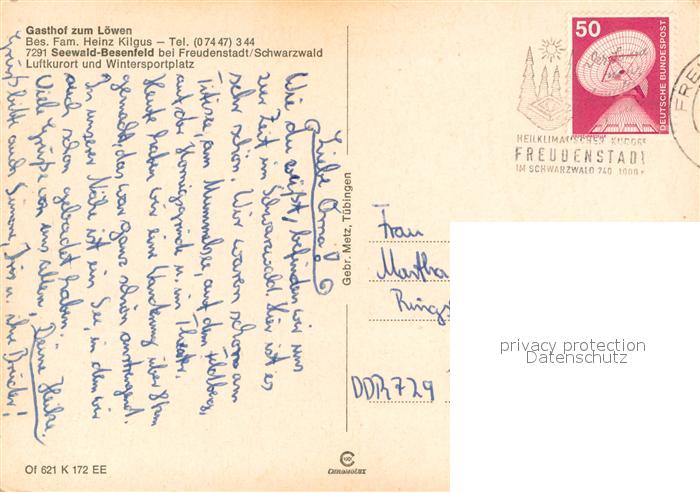 Gasthof zum Löwen
Bes. Fam. Heinz Kilgus – Tel. (0 74 47) 3 44
7291 Seewald-Besenfeld bei Freudenstadt/Schwarzwald
Luftkurort und Wintersportplatz
Liebe Oma!
Wie du weißt, befinden wir uns
zur Zeit im Schwarzwald. Hier ist es
sehr schön. Wir waren schon am
Titisee, am Mummelsee, auf dem Feldberg,
auf der Hornisgrinde u. im Theater.
Heute haben wir eine Wanderung über 8 km
gemacht, das war ganz schön anstrengend.
In unserer Nähe ist ein See, in dem wir
auch schon gebadet haben.
Viele Grüße von uns allen, Deine Heike.
Grüß bitte auch Simone, u. ihre Brüder!
Of 621 K 172 EE
Gebr. Metz, Tübingen
CHROMOLUX
50
DEUTSCHE BUNDESPOST
HEILKLIMATISCHER KURORT
FREUDENSTADT
IM SCHWARZWALD 740 1000 m
FRE
Frau
Martha
Rings
DDR 729
privacy protection
Datenschutz